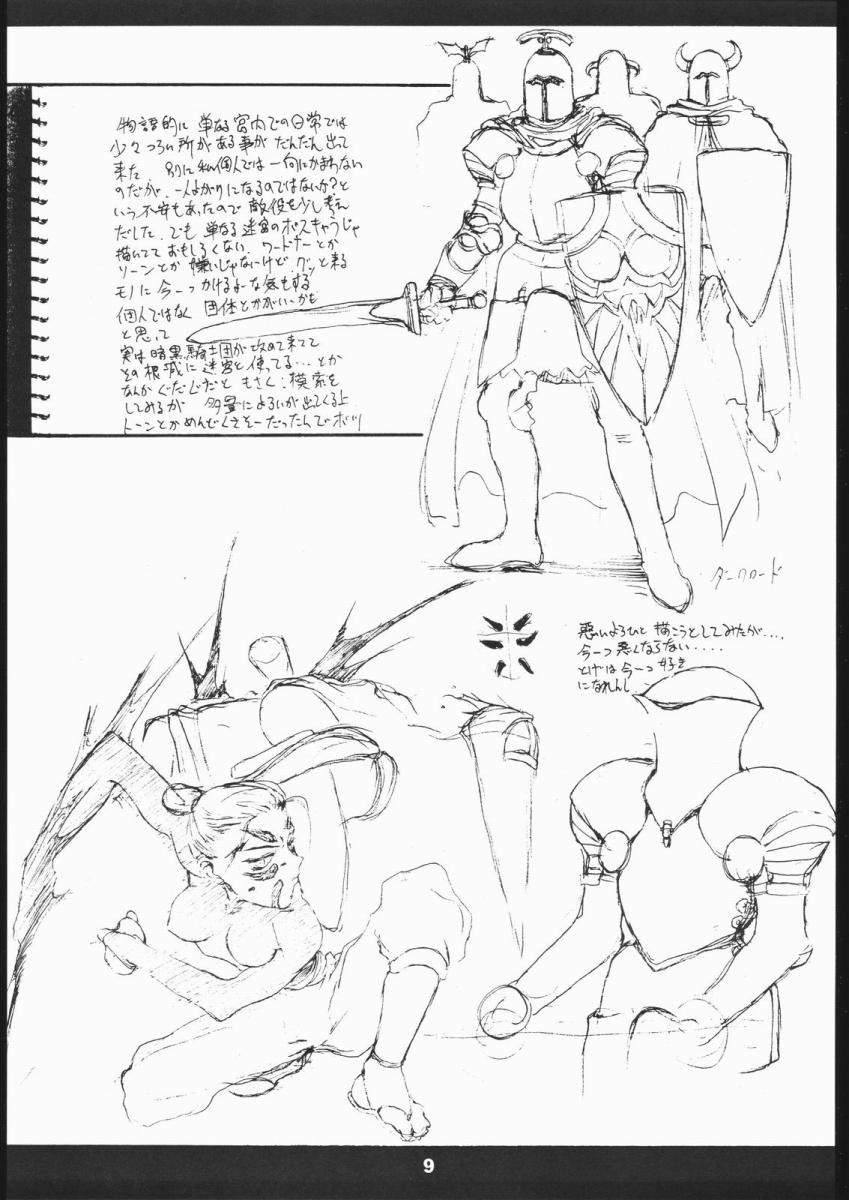 物語的に 単なる宮内での日常では
少々つらい所がある事が だんだん出て
来た. 別に私個人では一向にかまわない
のだが. 一人よがりになるのではないか?と
いう不安もあったので 敵役を少し考え
だした. でも 単なる迷宮のボスキャラじゃ
描いてて おもしろくない. ワードナーとか
ソーンとか 嫌いじゃないけど. グッと来る
モノに 今一つかけるような気もする
個人ではなく 団体とかがいいかも
と思って
実は暗黒騎士団が攻めて来てて
その根城に迷宮を使ってる…とか
なんか ぐだぐだと もさく:模索を
してみるが 多量によろいが出てくる上
トーンとかめんどくさそーだったんでボツ
ダークロード
悪いよろひを 描こうとしてみたが....
今一つ悪くならない....
とげは今一つ好き
になれんし
9